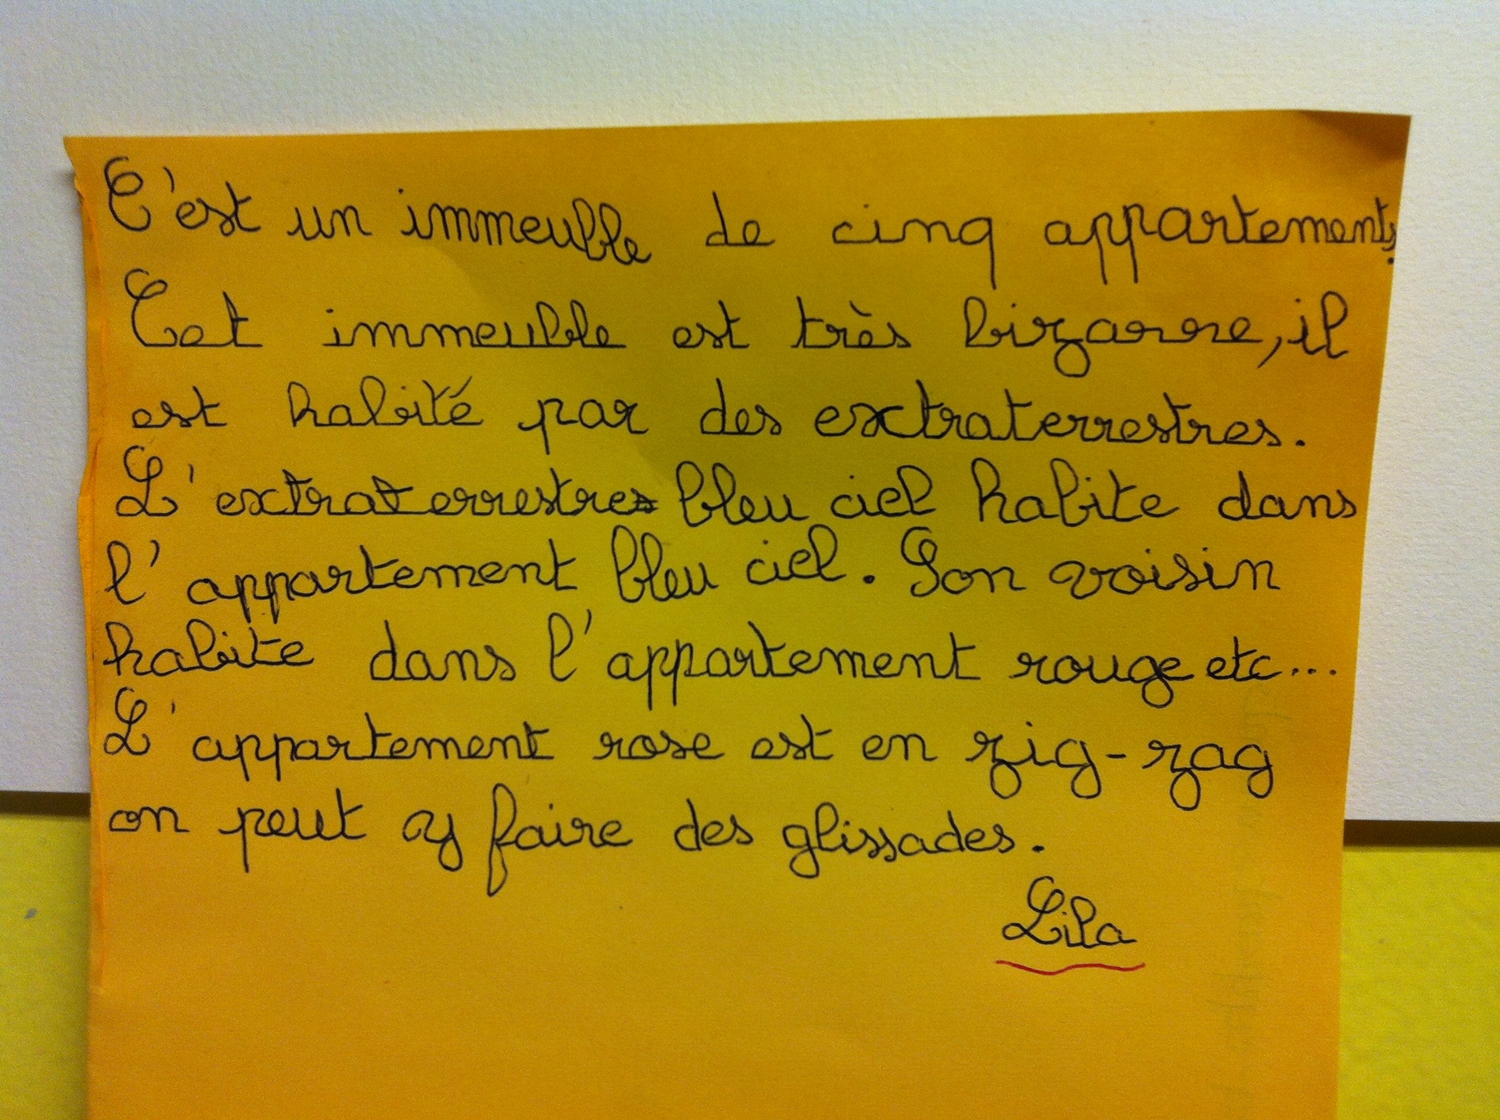 C'est un immeuble de cinq appartements.
Cet immeuble est très bizarre, il
est habité par des extraterrestres.
L'extraterrestre bleu ciel habite dans
l'appartement bleu ciel. Son voisin
habite dans l'appartement rouge etc...
L'appartement rose est en zig-zag
on peut y faire des glissades.
Lila